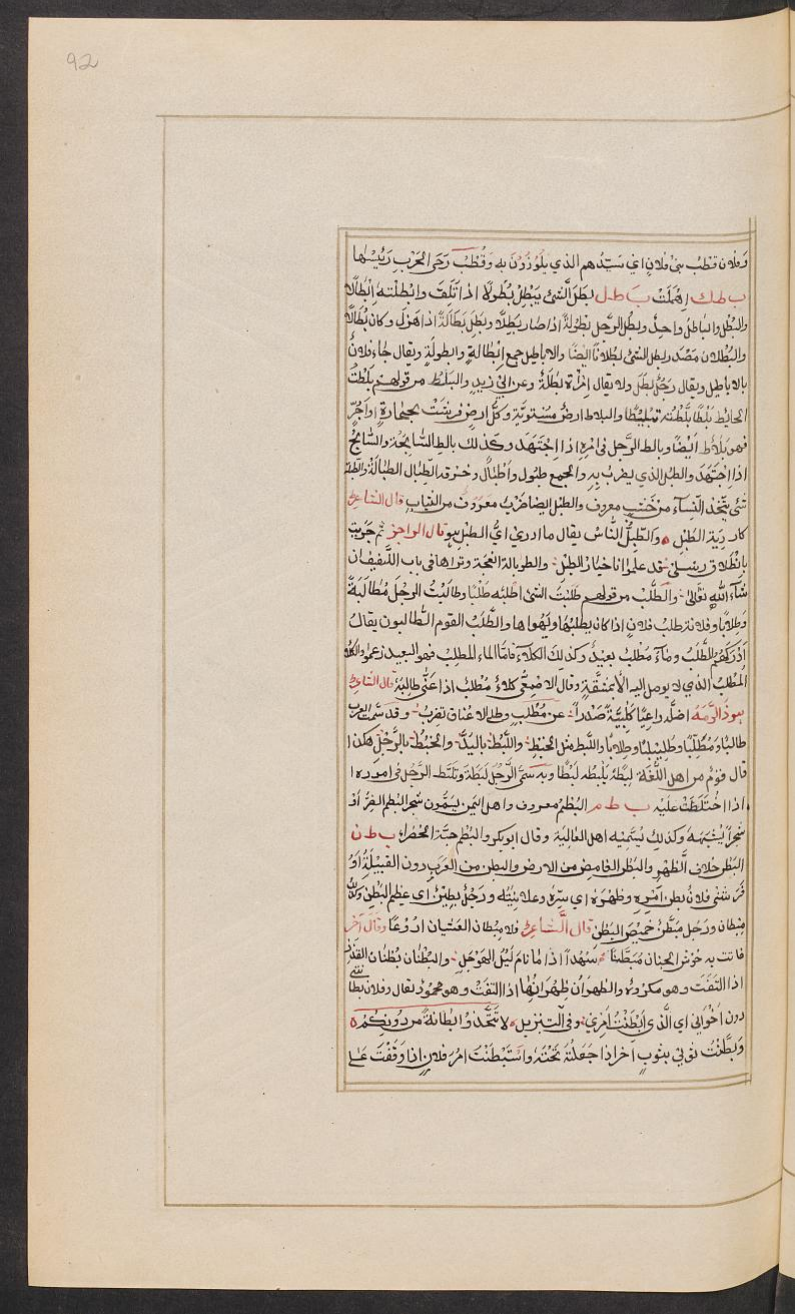 92
وفلان قطب بنى فلان اي سيدهم الذي يلوذون به وقطب رحى الحرب رئيسها
ب ط ك اهملت ب ط ل بطل الشئ يبطل بطولا اذا تلف وابطلته ابطالا
والبطل والباطل واحد وبطل الرجل بطولة اذا صار بطلا وبطل بطالة اذا هزل وكان بطالا
والبطلان مصدر بطل الشئ بطلانا ايضا والاباطيل جمع ابطالة وابطولة ويقال جاء فلان
بالاباطيل ويقال رجل بطل ولا يقال امراة بطلة وعن ابي زيد والبلط من قولهم بلطت
الحايط بلطا وبلطته تبليطا والبلاط ارض مستوية وكل ارض فرشت بحجارة او اجر
فهو بلاط ايضا وبالط الرجل في امره اذا اجتهد وكذلك بالط السابح والسابح
اذا اجتهد والطبل الذي يضرب به والجمع طبول واطبال وحرفة الطبال الطبالة والطبلة
شئ يتخذ النساء من خشب معروف والطبل ايضا ضرب معروف من الثياب قال الشاعر
كاردية الطبل والطبل الناس يقال ما ادري اي الطبل هو قال الراجز ثم جريت
بانطلاق رسلي قد علموا انا خيار الطبل والطوبالة النعجة وتراها في باب اللفيف ان
شاء الله تعالى والطلب من قولهم طلبت الشئ اطلبه طلبا وطالبت الرجل مطالبة
وطلابا وفلانة طلب فلان اذا كان يطلبها ويهواها والطلب القوم الطالبون يقال
ادركهم الطلب وماء مطلب بعيد وكذلك الكلاء فاما الماء المطلب فهو البعيد زعموا والكلاء
المطلب الذي لا يوصل اليه الا بمشقة وقال الاصمعي كلاء مطلب اذا عنى طالبه قال الشاعر
هو ذو الرمة اضله راعيا كلبية صدرا عن مطلب وطلى الاعناق تضرب وقد سمت العرب
طالبا ومطلبا وطليبا وطلابا واللبط مثل الخبط واللبط باليد والخبط بالرجل هكذا
قال قوم من اهل اللغة لبطه يلبطه لبطا وبه سمى الرجل لبطة وتلبط الرجل في اموره ا
اذا اختلطت عليه ب ط م البطم معروف واهل اليمن يسمون شجر البطم الضرو او
شجرا يشبهه وكذلك يسميه اهل العالية وقال ابوبكر والبطم حبة الخضراء ب ط ن
البطن خلاف الظهر والبطن الغامض من الارض والبطن من العرب دون القبيلة او
فرشنى فلان بطن امره وظهره اي سره وعلانيته ورجل بطين اي عظيم البطن وكذلك
مبطان ورجل مبطن خميص البطن قال الشاعر فلا مبطان العشيات اروعا وقال اخر
فاتت به حوش الجنان مبطنا سهدا اذا ما نام ليل الهوجل والبطنان بطنان القذذ
اذا التفت وهو مكروه والظهران ظهرانها اذا التفت وهو محمود يقال وفلان بطانتى
دون اخواني اي الذي ابطنت امري وفي التنزيل لا تتخذوا بطانة من دونكم
وبطنت ثوبي بثوب اخر اذا جعلته تحته واستبطنت امر فلان اذا وقفت على